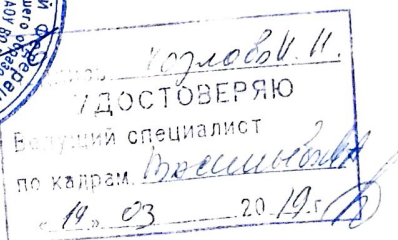 Козлова И. И.
УДОСТОВЕРЯЮ
Ведущий специалист
по кадрам
« 19 » 03 2019 г.